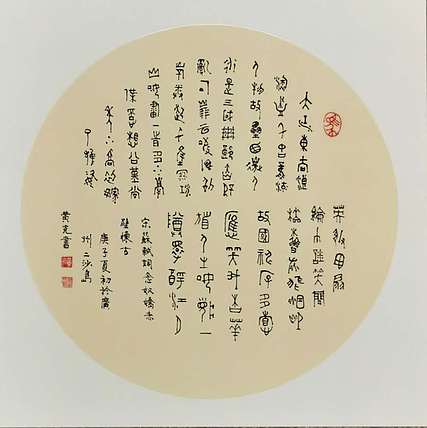 大江東去浪
淘盡千古風流
人物故壘西邊人
道是三國周郎赤壁
亂石崩雲驚濤裂
岸卷起千堆雪江
山如畫一時多少豪
傑遙想公瑾當
年小喬初嫁
了雄姿
英發羽扇
綸巾談笑間
檣櫓灰飛煙滅
故國神遊多情
應笑我早生華
髮人生如夢一
樽還酹江月
宋蘇軾詞念奴嬌赤
壁懷古
庚子夏初於廣
州二沙島
黃克書